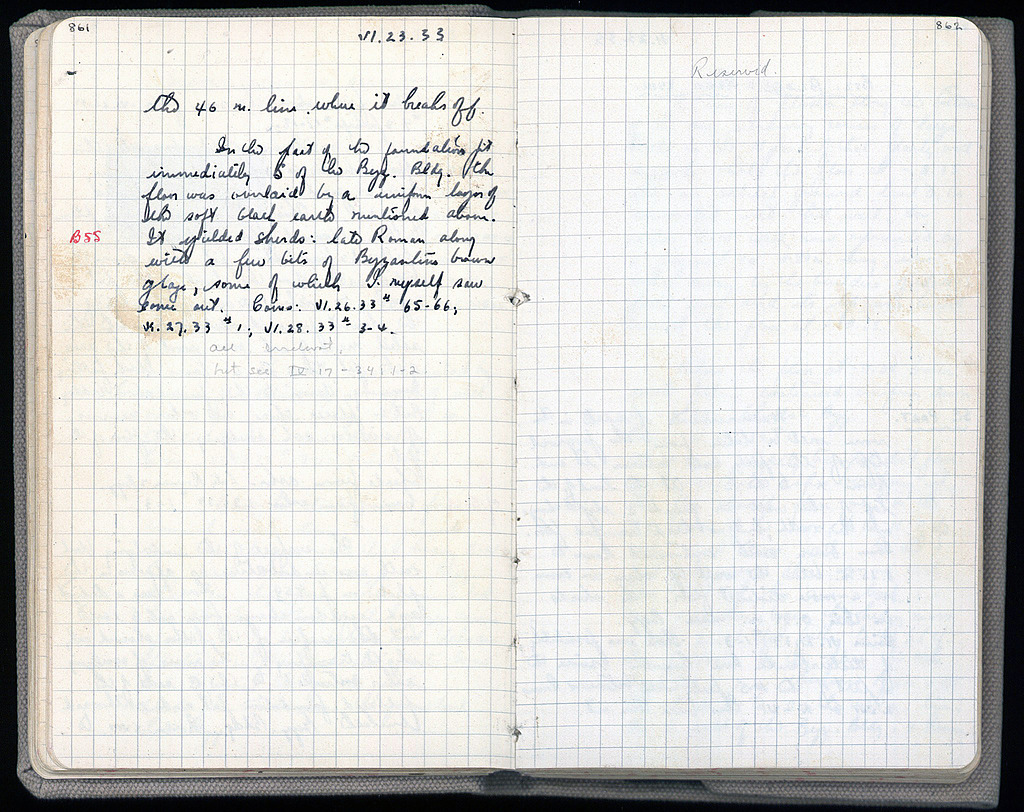 861
VI.23.33
the 46 m. line where it breaks off.
In the part of the foundation pit
immediately S of the Byz. Bldg. the
floor was overlaid by a uniform layer of
the soft black earth mentioned above.
B55
It yielded sherds: late Roman along
with a few bits of Byzantine brown
glaze, some of which I myself saw
come out. Coins: VI.26.33 # 65-66;
VI.27.33 # 1; VI.28.33 # 3-4.
all
but see IV-17-34 1-2.
862
Reserved.